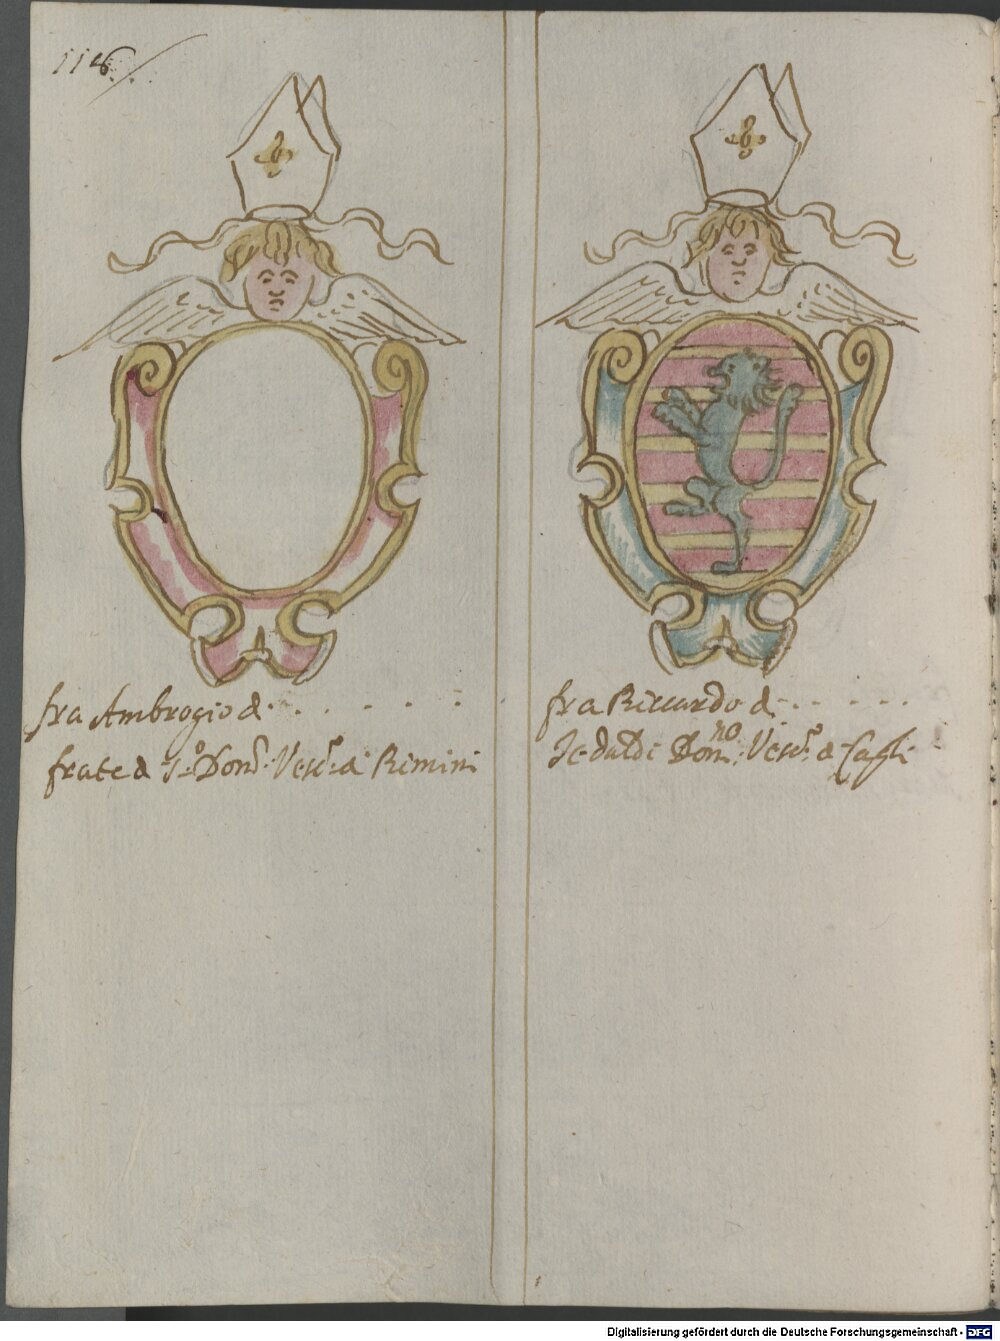 116
fra Ambrogio d. . . . . . .
frate d S.º Domº. Vescº. d Rimini
fra Riccardo d. . . . . .
Tedaldi Domno. Vescº. d Cagli
Digitalisierung gefördert durch die Deutsche Forschungsgemeinschaft - DFG